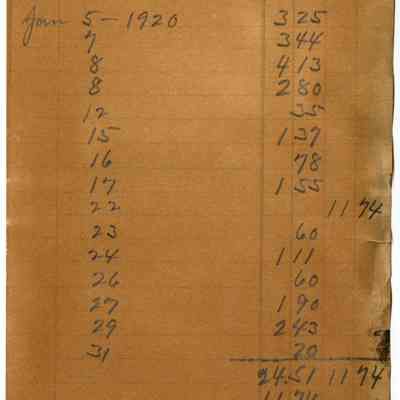 Jan 5 - 1920 3 25
7 3 44
8 4 13
8 2 80
12 35
15 1 37
16 78
17 1 55
22 11 74
23 60
24 1 11
26 60
27 1 90
29 2 43
31 20
24.51 11 74
11 74